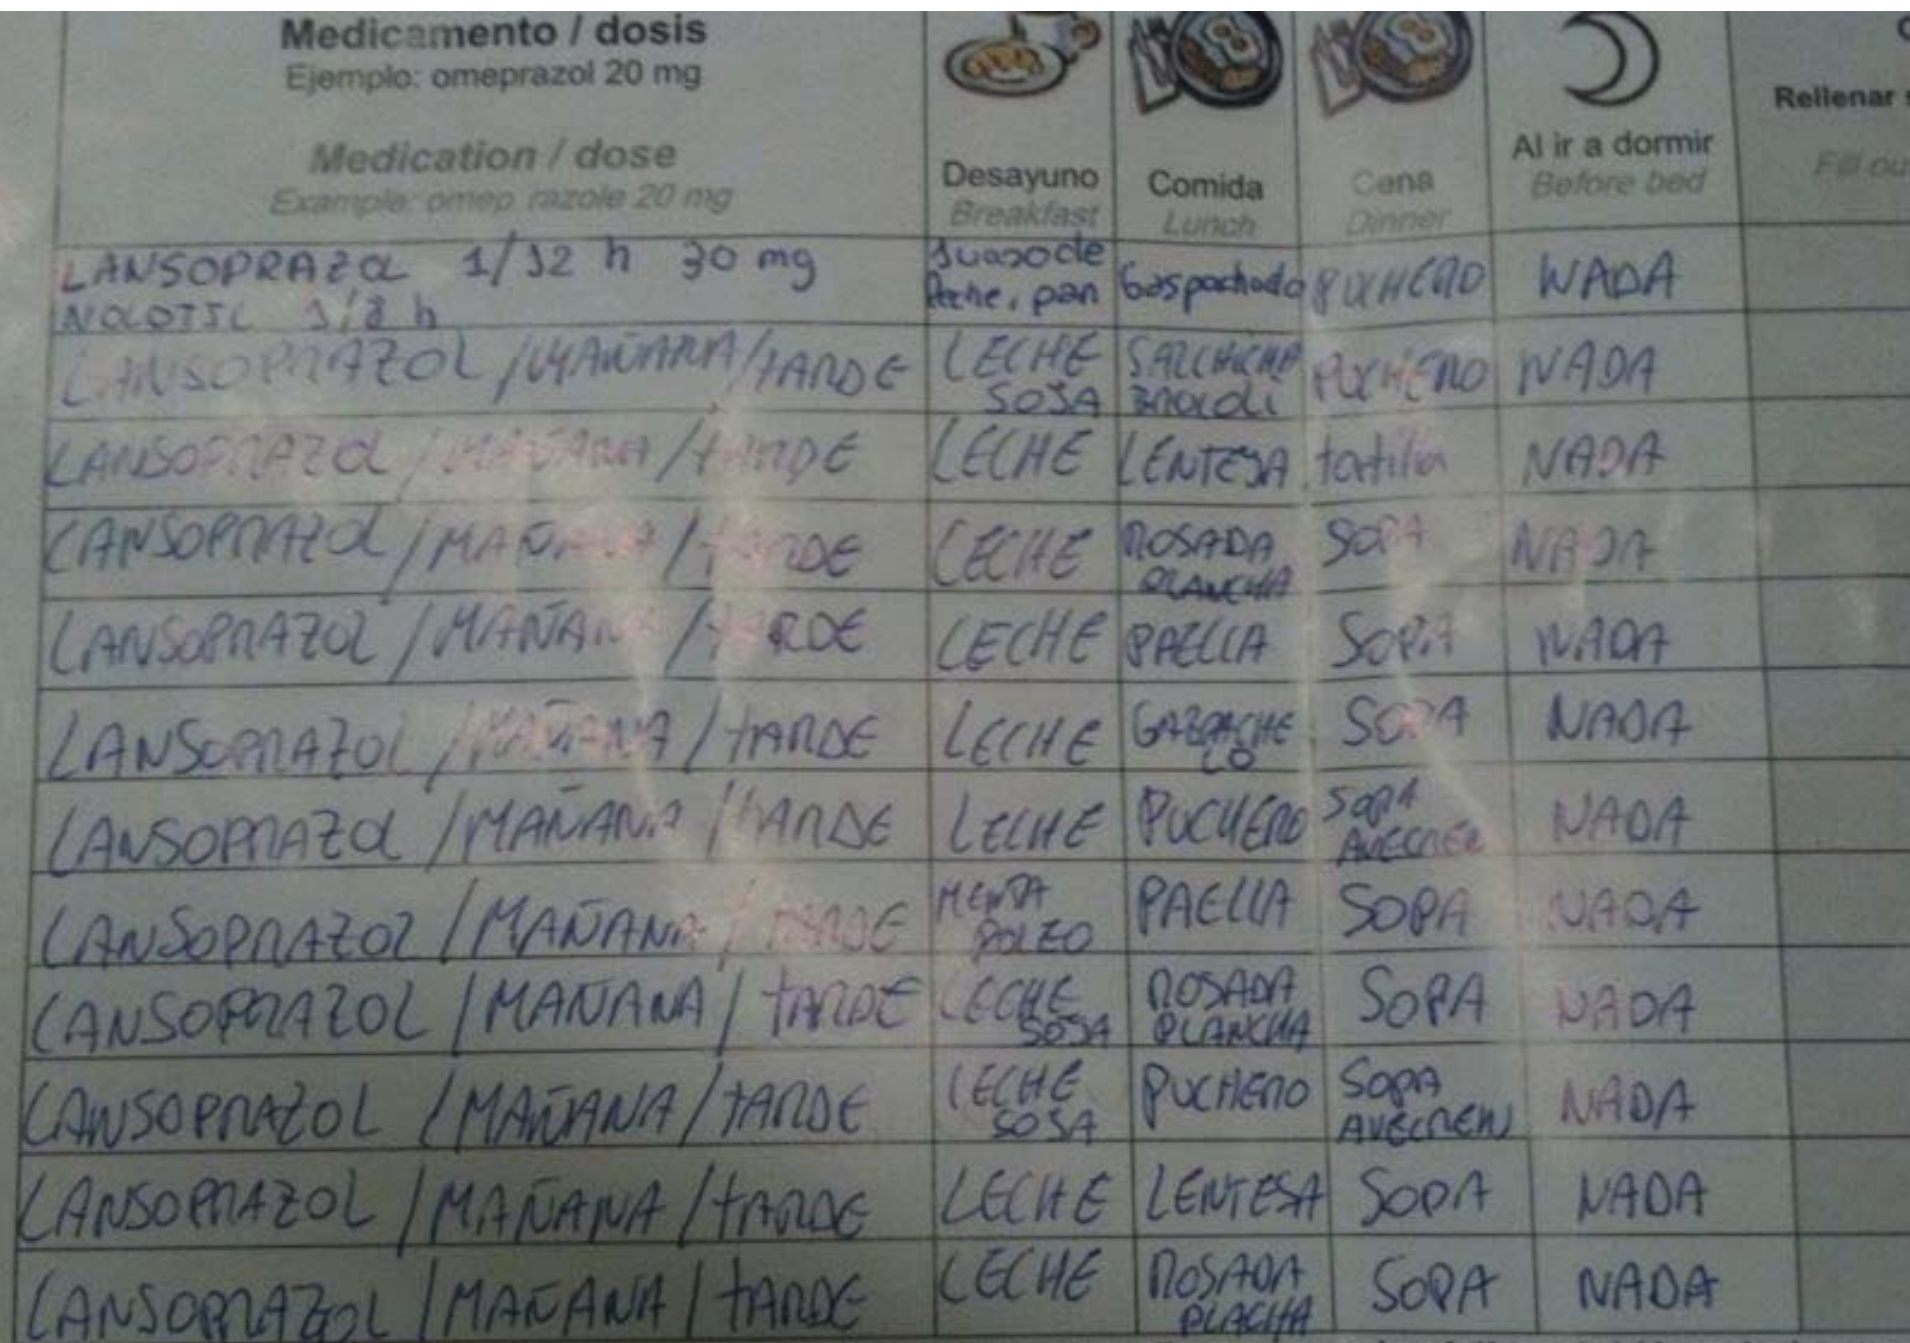 Medicamento / dosis
Ejemplo: omeprazol 20 mg
Medication / dose
Example: omep razole 20 mg
Desayuno
Breakfast
Comida
Lunch
Cena
Dinner
Al ir a dormir
Before bed
Rellenar
LANSOPRAZOL 1/12 h 30 mg
NOLOTIL 1/8 h
leche, pan
PUCHERO
NADA
LANSOPRAZOL /MAÑANA/tARDE
LECHE
SOJA
SALCHICHA
BROCOLI
PUCHERO
NADA
LANSOPRAZOL /MAÑANA/tARDE
LECHE
LENTEJA
tortilla
NADA
LANSOPRAZOL /MAÑANA/tARDE
LECHE
ROSADA
PLANCHA
SOPA
NADA
LANSOPRAZOL /MAÑANA/tARDE
LECHE
PAELLA
SOPA
NADA
LANSOPRAZOL /MAÑANA/tARDE
LECHE
GAZPACHE
LO
SOPA
NADA
LANSOPRAZOL /MAÑANA/tARDE
LECHE
PUCHERO
SOPA
AVECREM
NADA
LANSOPRAZOL /MAÑANA/tARDE
MENTA
POLEO
PAELLA
SOPA
NADA
LANSOPRAZOL /MAÑANA/tARDE
LECHE
SOJA
ROSADA
PLANCHA
SOPA
NADA
LANSOPRAZOL /MAÑANA/tARDE
LECHE
SOJA
PUCHERO
SOPA
AVECREM
NADA
LANSOPRAZOL /MAÑANA/tARDE
LECHE
LENTEJA
SOPA
NADA
LANSOPRAZOL /MAÑANA/tARDE
LECHE
ROSADA
PLACHA
SOPA
NADA